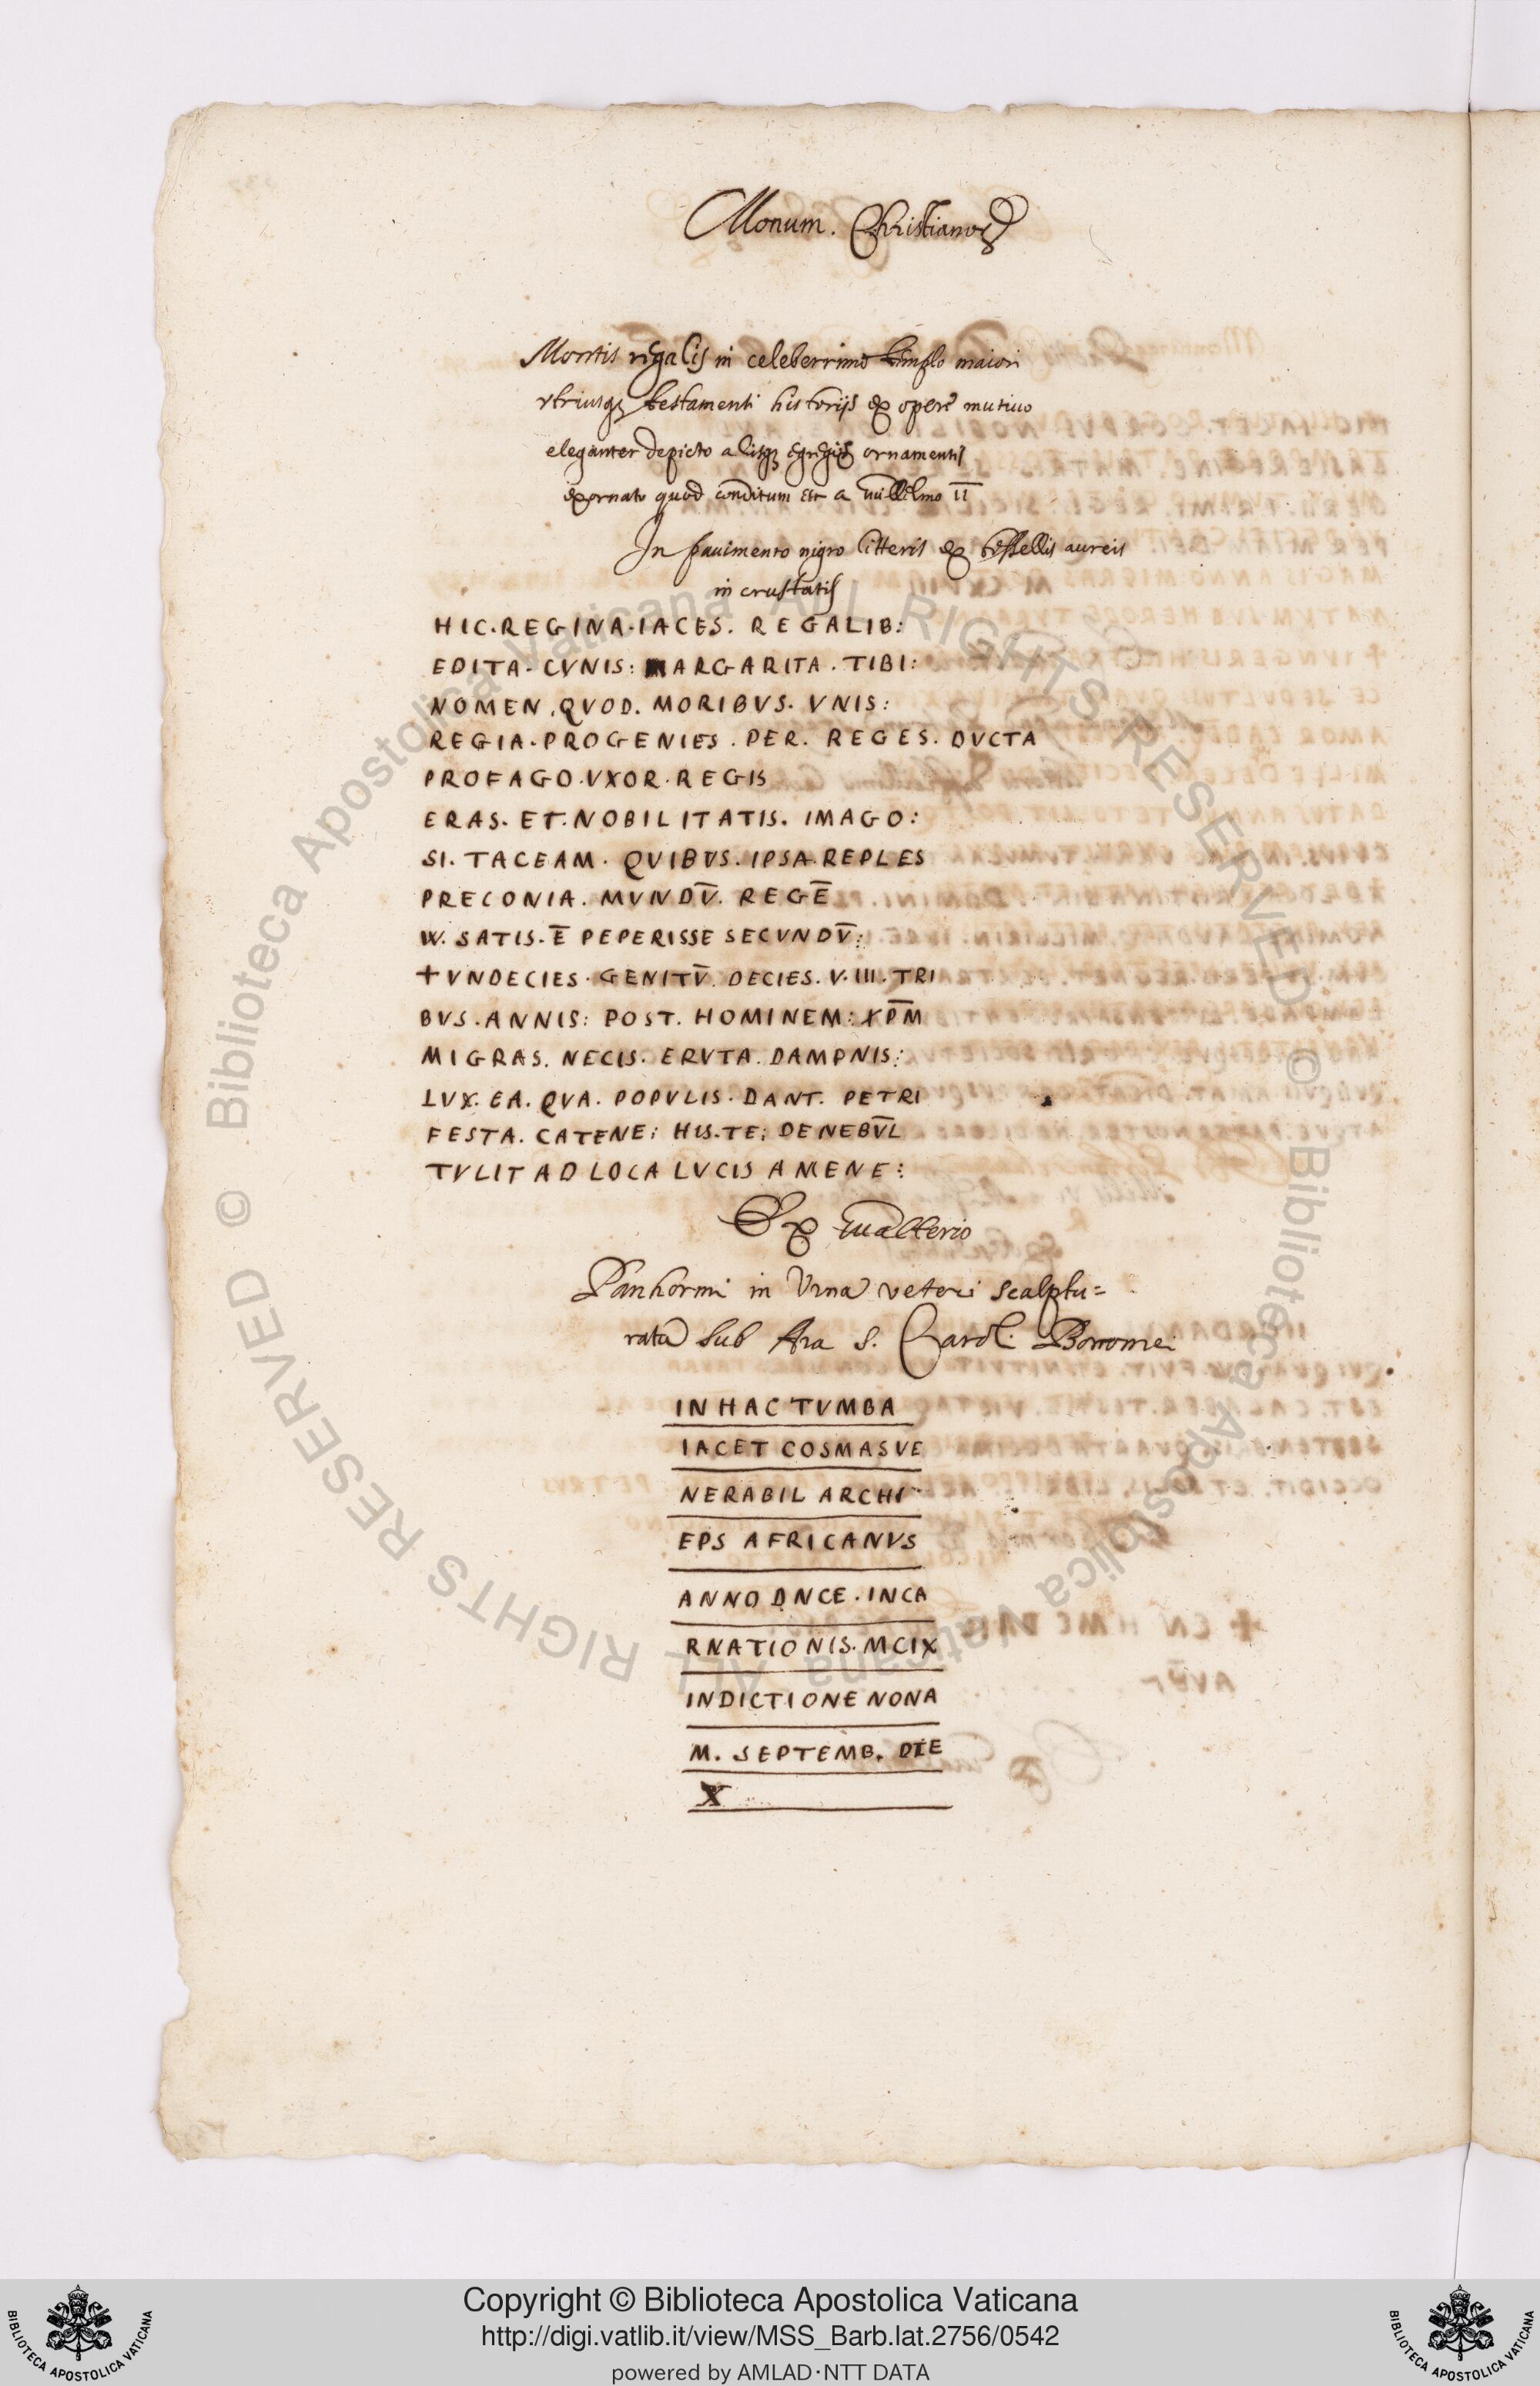 Monum. Christianoꝝ
Montis regalis in celeberrimo templo maiori
vtriusqꝫ testamenti historijs ex opere musiuo
eleganter depicto alisqꝫ egregijs ornamentis
exornato quod conditum est a Willelmo II
In pauimento nigro litteris ex tessellis aureis
in crustatis
HIC.REGINA.IACES. REGALIB:
EDITA. CVNIS: MARGARITA. TIBI:
NOMEN. QVOD. MORIBVS. VNIS:
REGIA. PROGENIES. PER. REGES. DVCTA
PROFAGO.VXOR.REGIS
ERAS. ET. NOBILITATIS. IMAGO:
SI. TACEAM. QVIBVS. IPSA.REPLES
PRECONIA. MVNDV̄. REGĒ
W. SATIS. Ē PEPERISSE SECVNDV̄:
+VNDECIES. GENITV̄. DECIES. V. III. TRI
BVS. ANNIS: POST. HOMINEM: XP̄M
MIGRAS. NECIS. ERVTA. DAMPNIS:
LVX. EA. QVA. POPVLIS. DANT. PETRI
FESTA. CATENE: HIS.TE: DE NEBV̄L
TVLIT AD LOCA LVCIS AMENE:
Ex Gualterio
Panhormi in Vrna veteri scalptu=
rata sub Ara S. Caroli Borromei
IN HAC TVMBA
IACET COSMAS VE
NERABIL ARCHI
EPS AFRICANVS
ANNO DNCE. INCA
RNATIONIS. MCIX
INDICTIONE NONA
M. SEPTEMB. DIE
X
Copyright © Biblioteca Apostolica Vaticana
http://digi.vatlib.it/view/MSS_Barb.lat.2756/0542
powered by AMLAD·NTT DATA
© Biblioteca Apostolica Vaticana ALL RIGHTS RESERVED © Biblioteca Apostolica Vaticana ALL RIGHTS RESERVED
BIBLIOTECA APOSTOLICA VATICANA
BIBLIOTECA APOSTOLICA VATICANA